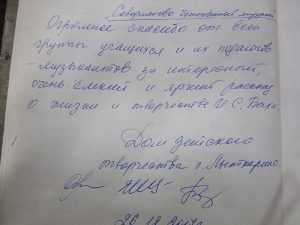 Совершенно божественной музыки
Огромное спасибо от всей
группы учащихся и их педагогов
- музыкантов за интересный,
очень ёмкий и яркий рассказ
о жизни и творчестве И.С. Баха.
Дом детского
творчества г.
26.12.